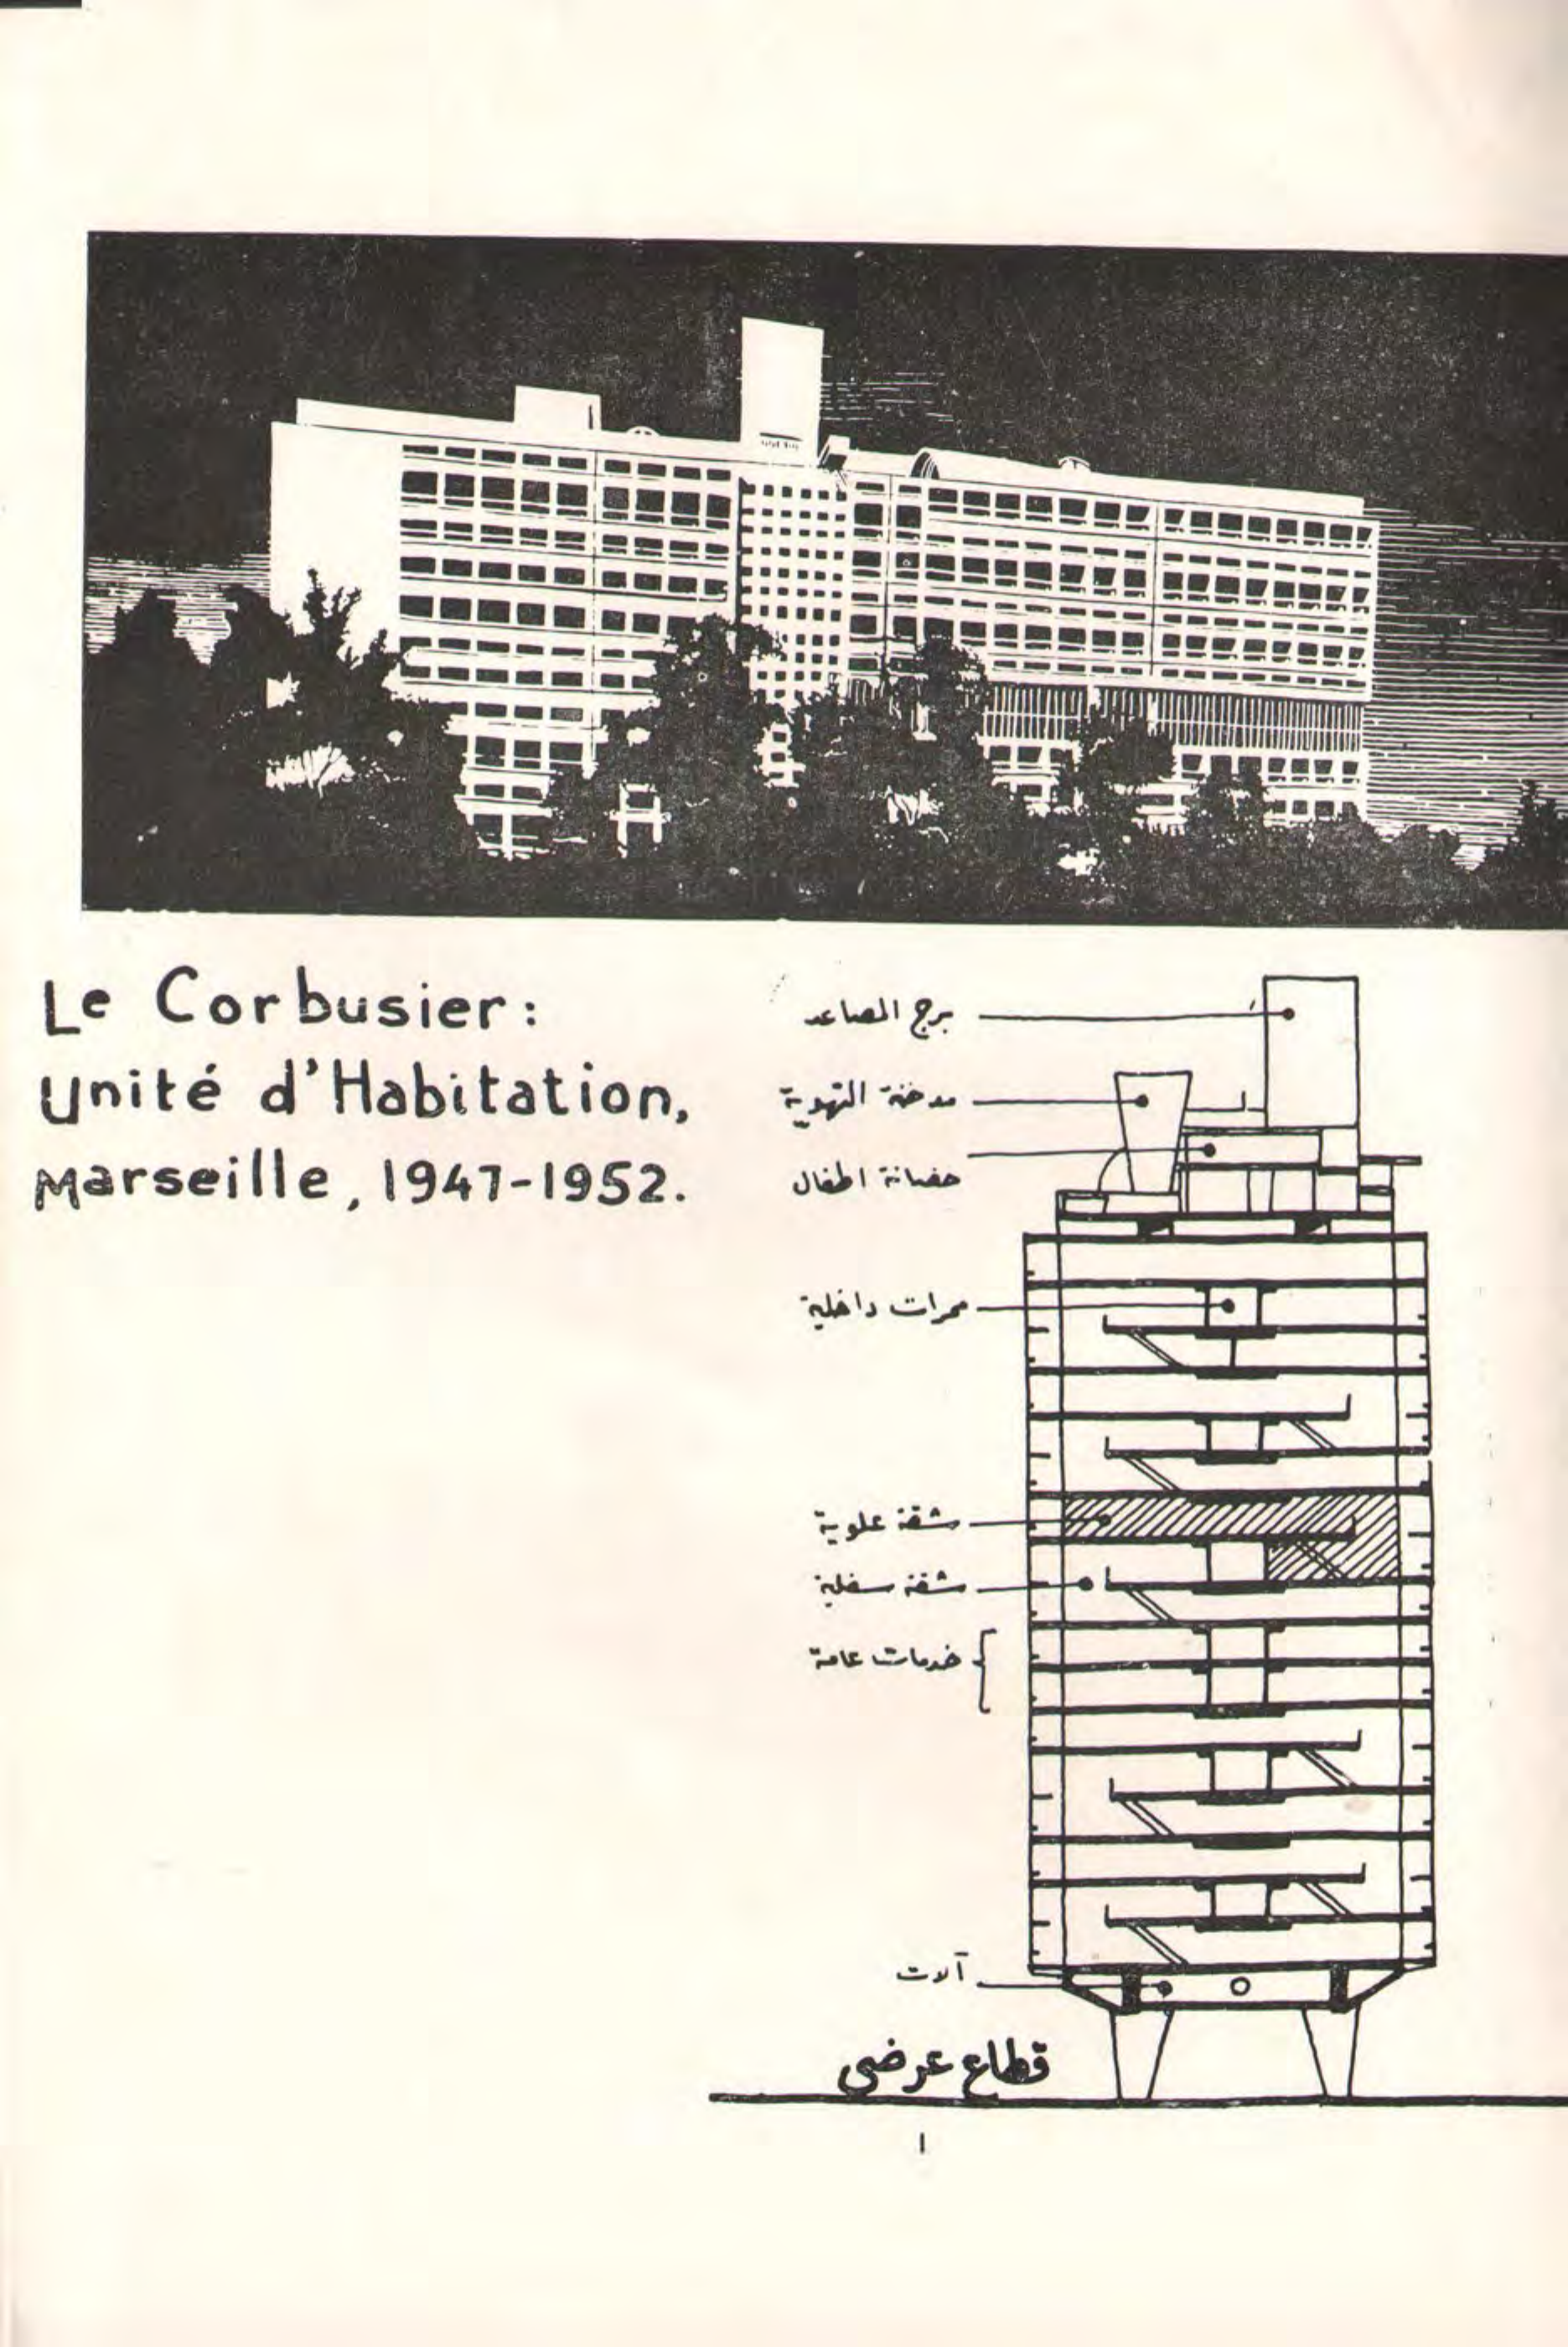 Le Corbusier:
Unité d'Habitation,
Marseille, 1947-1952.
برج المصاعد
مدخنة التهوية
حضانة اطفال
ممرات داخلية
شقة علوية
شقة سفلية
خدمات عامة
آلات
قطاع عرضي
١